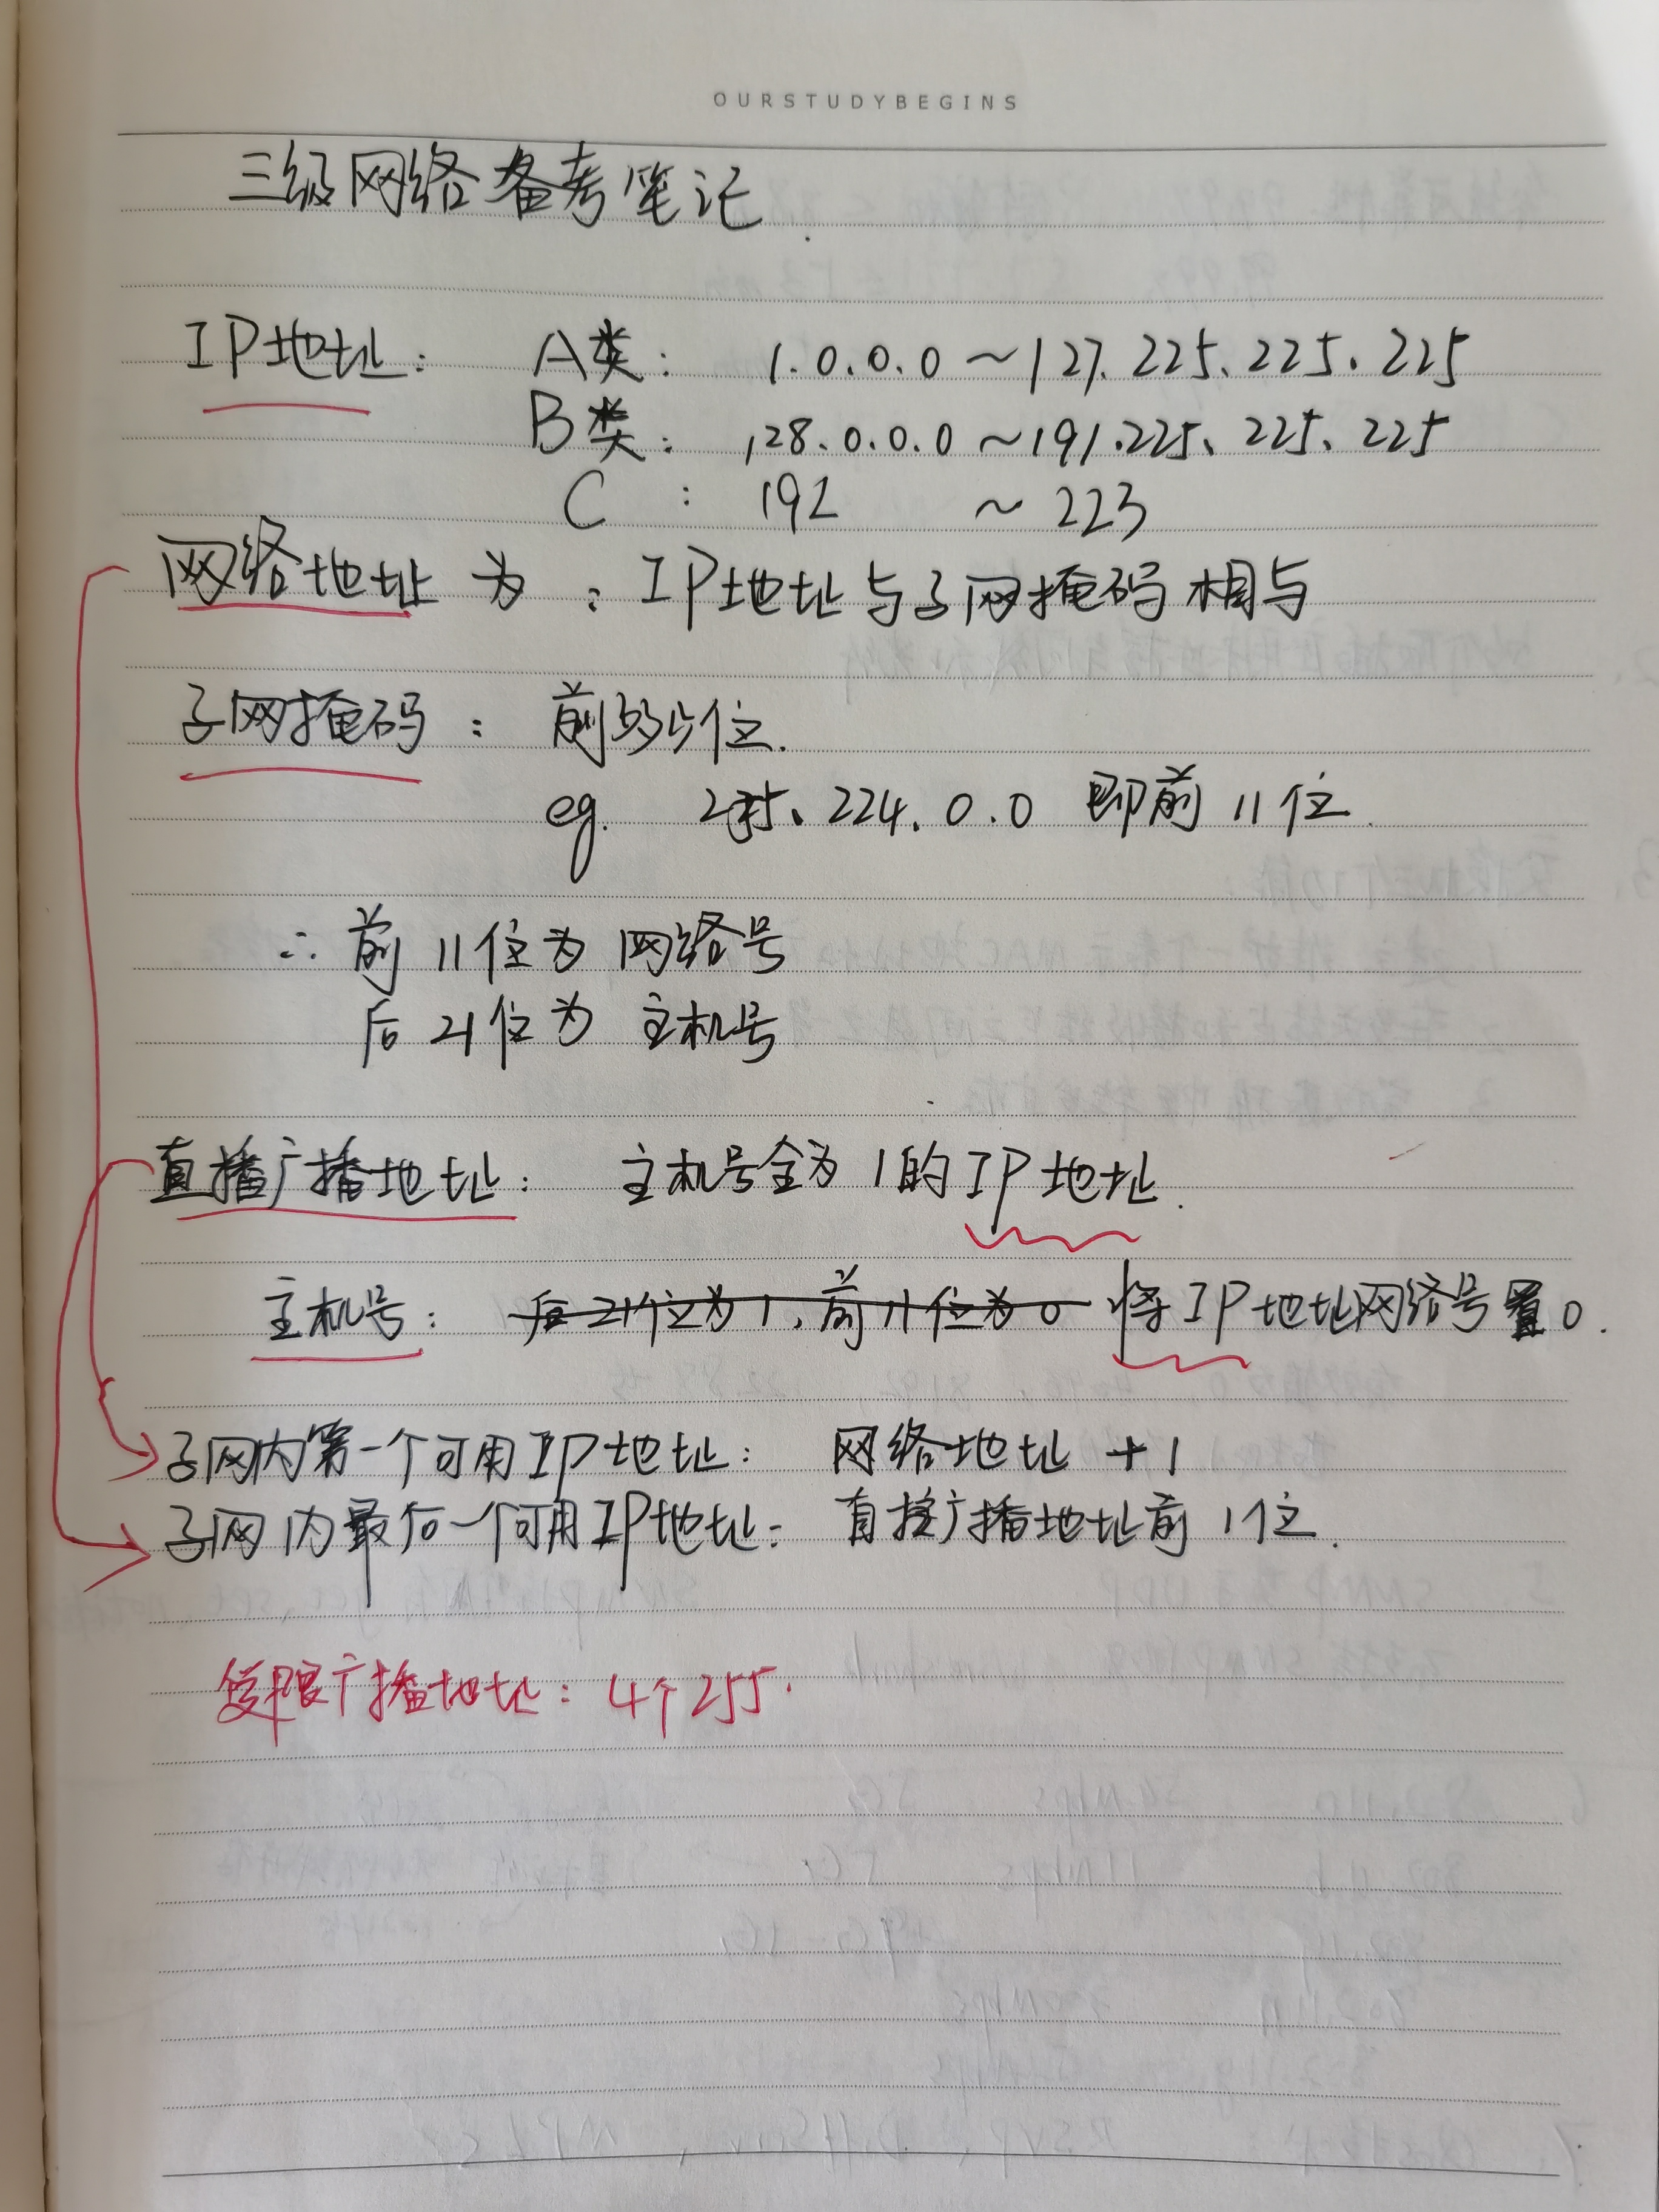 OURSTUDYBEGINS
三级网络备考笔记
IP地址: A类: 1.0.0.0~127.225.225.225
B类: 128.0.0.0~191.225.225.225
C : 192 ~ 223
网络地址为: IP地址与子网掩码相与
子网掩码: 前 位.
eg. 255.224.0.0 即前11位.
∴前11位为网络号
后21位为主机号
直播广播地址: 主机号全为1的IP地址.
主机号: 后21位为1,前11位为0 将IP地址网络号置0.
子网内第一个可用IP地址: 网络地址+1
子网内最后一个可用IP地址: 直接广播地址前1位.
受限广播地址: 4个255.